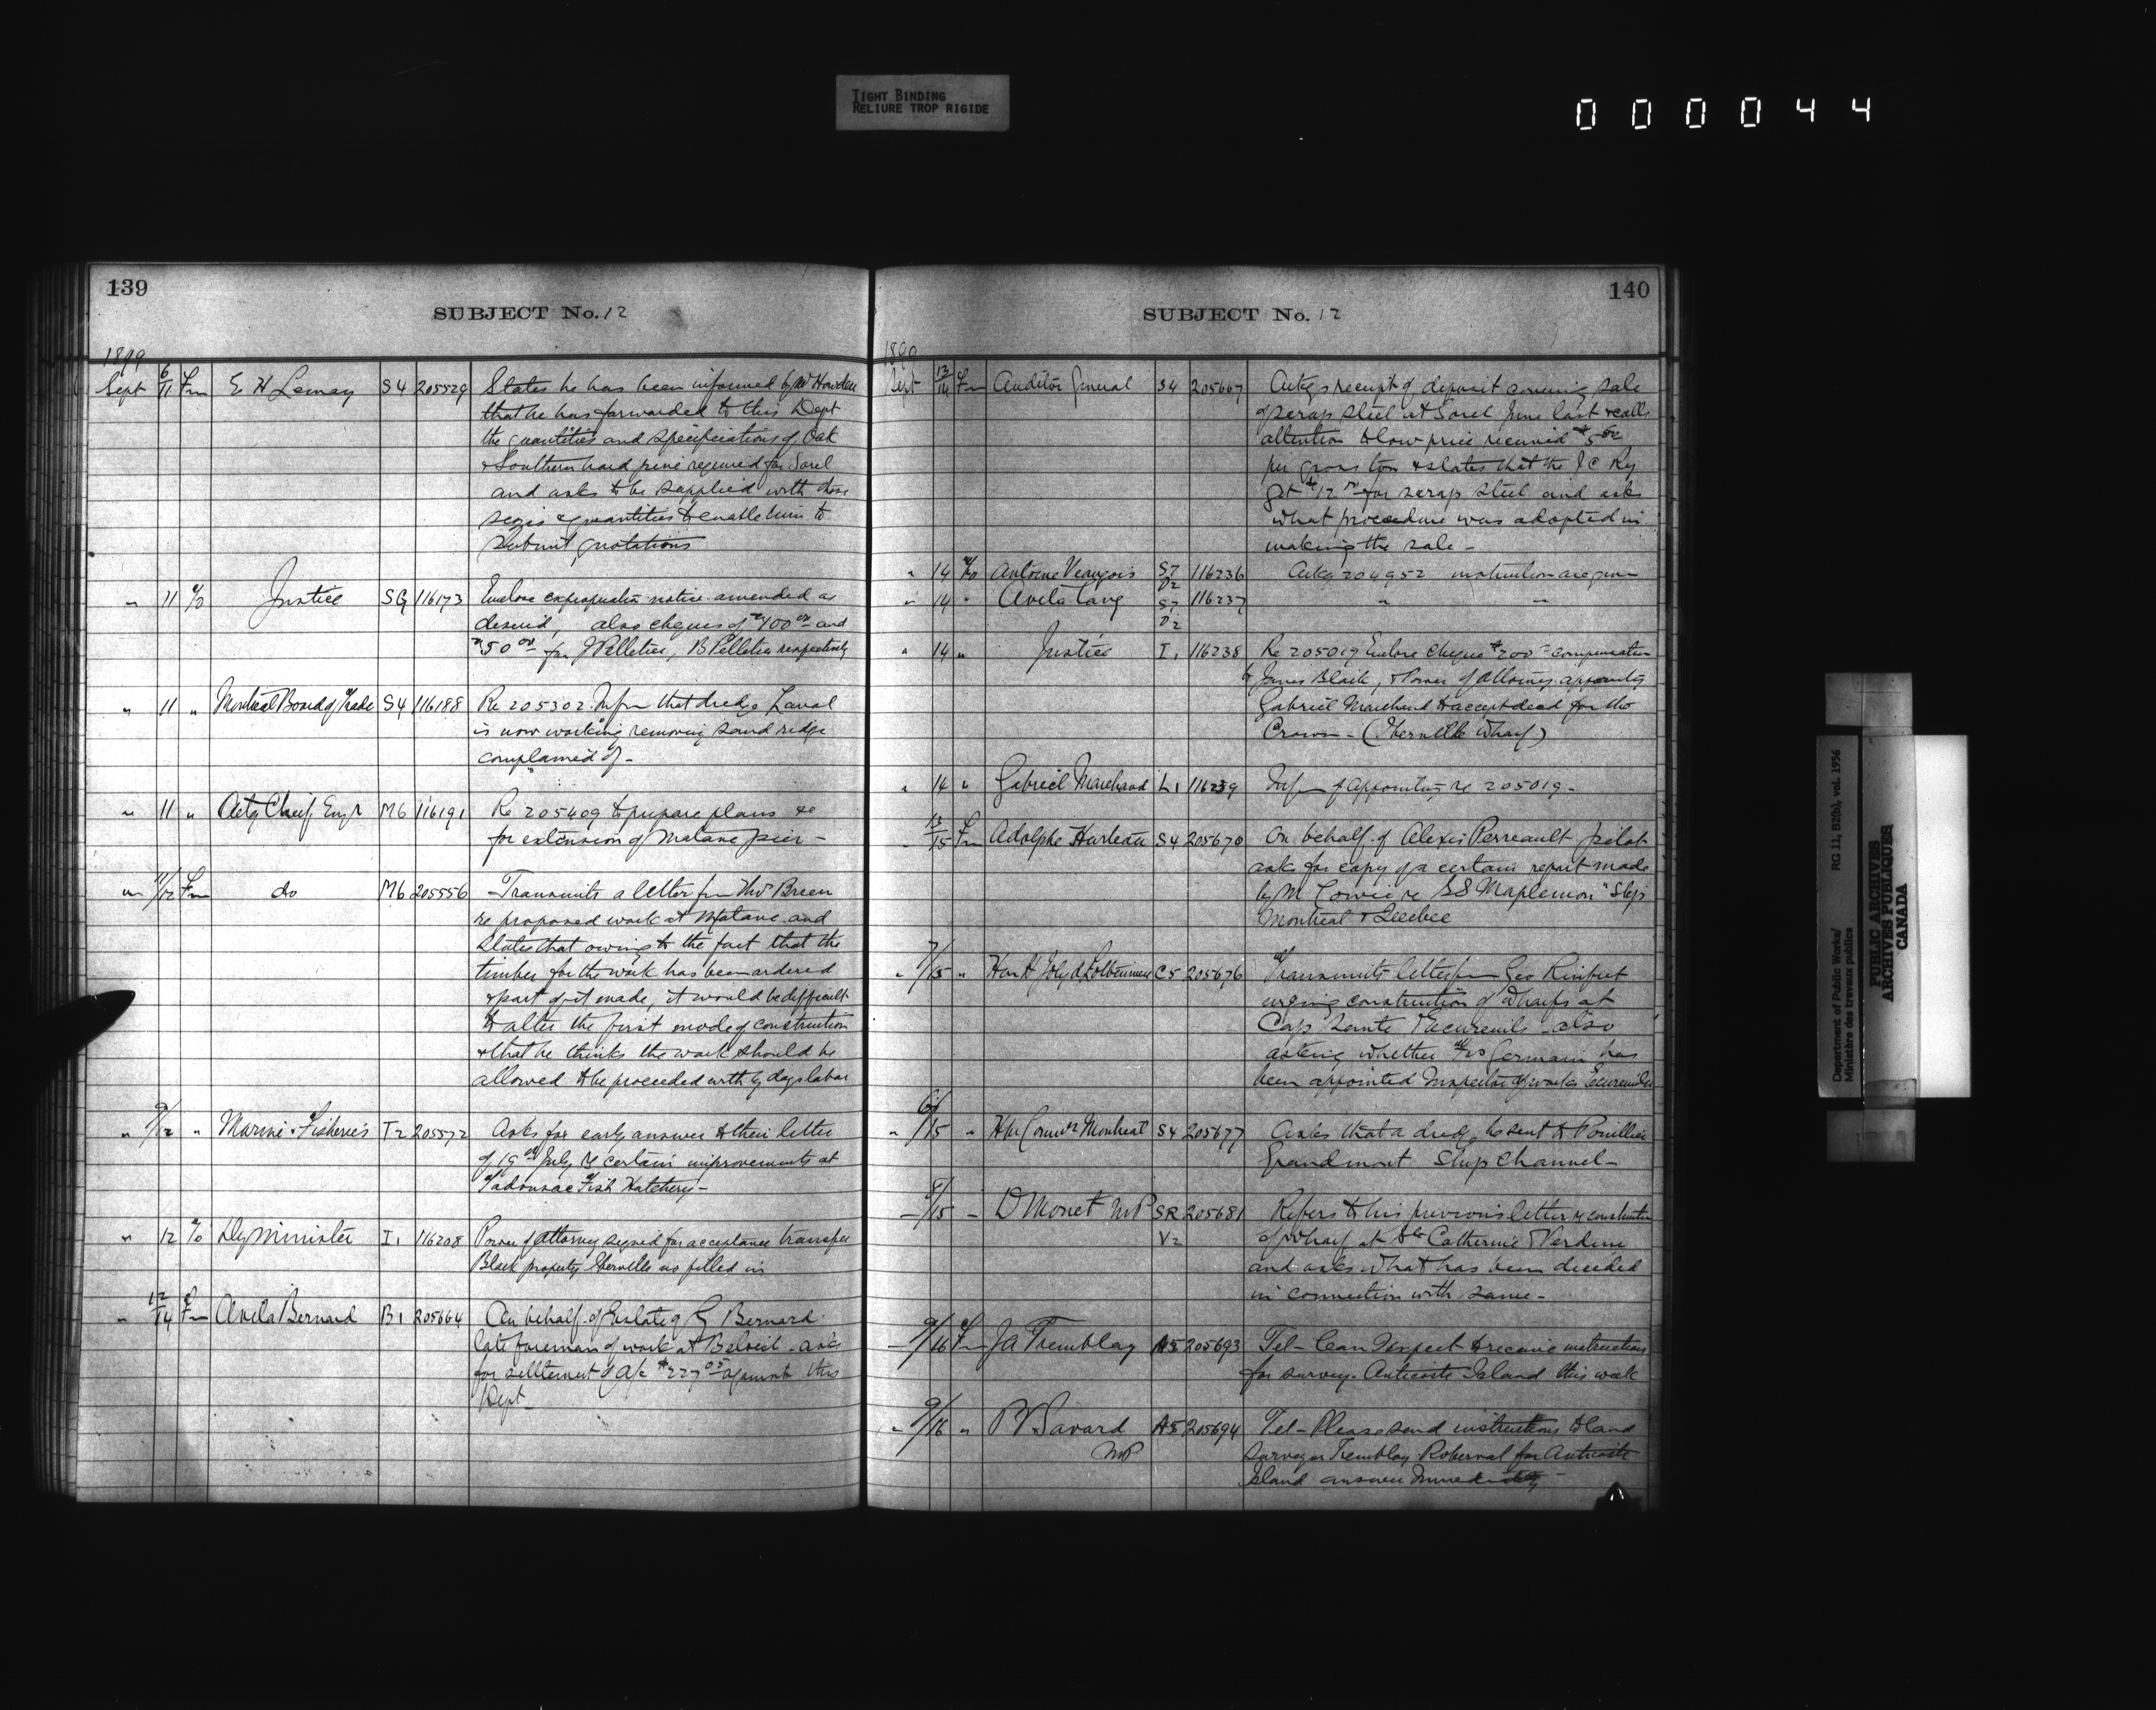 TIGHT BINDING
RELIURE TROP RIGIDE
000044
139
SUBJECT No. 12
1899
Sept 6/11 Fm E H Lemay S4 205529 States he has been informed by Mr Howden
that he has forwarded to this Dept
the quantities and specifications of Oak
& Southern hard pine required for Sorel
and asks to be supplied with these
sizes & quantities to enable him to
submit quotations
" 11 To Justice SG 116173 Enclose expropriation notice amended as
desired, also cheques of $400 00 and
$50 00 for J Pelletier, B Pelletier respectively
" 11 " Montreal Board of Trade S4 116188 Re 205302. Infm that dredge Laval
is now working removing sand ridge
complained of -
" 11 " Actg Chief Engr M6 116191 Re 205409 to prepare plans &c
for extension of Matane pier -
" 11/12 Fm do M6 205556 Transmits a letter fm Thos Breen
re proposed work at Matane and
States that owing to the fact that the
timber for the work has been ordered
& part of it made, it would be difficult
to alter the first mode of construction
& that he thinks the work should be
allowed to be proceeded with by days labor
" 9/12 " Marine & Fisheries T2 205572 Asks for early answer to their letter
of 19th July re certain improvements at
Tadousac Fish Hatchery -
" 12 To Dy Minister I1 116208 Power of attorney signed for acceptance transfer
Black property Iberville as filled in
" 12/14 Fm Avila Bernard B1 205664 On behalf of Estate of G Bernard
late foreman of work at Beloeil - asks
for settlement of A/c $227 05 against this
Dept
140
SUBJECT No. 12
Sept 13/14 Fm Auditor General S4 205667 Ackgs receipt of deposit covering sale
of scrap steel at Sorel June last & calls
attention to low price received $5 00
per gross ton & states that the I C Ry
get $12 00 for scrap steel and asks
what procedure was adopted in
making the sale -
" 14 To Antoine S7 D2 116236 Ackg 204952 instruction are given
" 14 " Avila S7 D2 116237 " "
" 14 " Justice I1 116238 Re 205019 Enclose cheque $200 compensation
to James Black, & Power of attorney appointing
Gabriel Marchand to accept deed for the
Crown - (Iberville Wharf)
" 14 " Gabriel Marchand L1 116239 Infm of appointmt re 205019 -
" 13/15 Fm Adolphe Hurteau S4 205670 On behalf of Alexis Perreault pilot
asks for copy of a certain report made
by M Cowie re SS Maplemon "Ship
Montreal & Quebec
" 7/15 " Hon H Joly d Lotbiniere C5 205676 Transmits letter fm Geo Rinfret
urging construction of Wharfs at
Cap Sante & Ecureuils - also
asking whether Germain has
been appointed Inspector of works Ecureuils
" 6/15 " Montreal S4 205677 Asks that a dredge be sent to Pouillier
Grandmont Ship Channel -
" 8/15 " D Monet MP SR V2 205681 Refers to his previous letter re construction
of wharf at Ste Catherine Verdun
and asks what has been decided
in connection with same -
" 9/16 Fm J A Tremblay A5 205693 Tel - Can I expect to receive instructions
for survey - Anticosti Island this week
" 9/16 " P V Savard A5 205694 Tel - Please send instructions to land
MP
surveyor Tremblay Roberval for Anticosti
Island answer immediately -
Department of Public Works/ RG 11, B2(b), vol. 1956
Ministère des travaux publics
PUBLIC ARCHIVES
ARCHIVES PUBLIQUES
CANADA